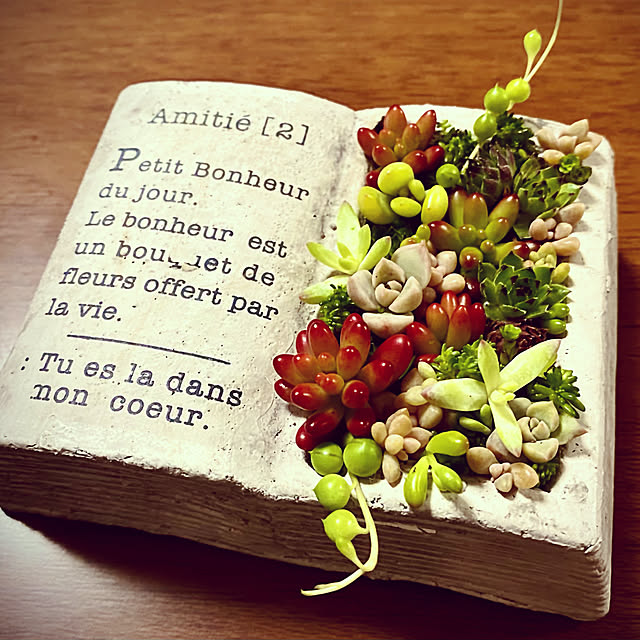 Amitié [2]
Petit Bonheur
du jour.
Le bonheur est
un bouquet de
fleurs offert par
la vie.
: Tu es la dans
non coeur.